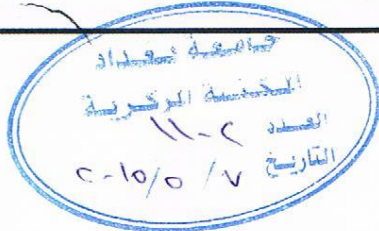 جامعة بغداد
المكتبة المركزية
العدد ١١٠٢
التاريخ ٧ / ٥ / ٢٠١٥